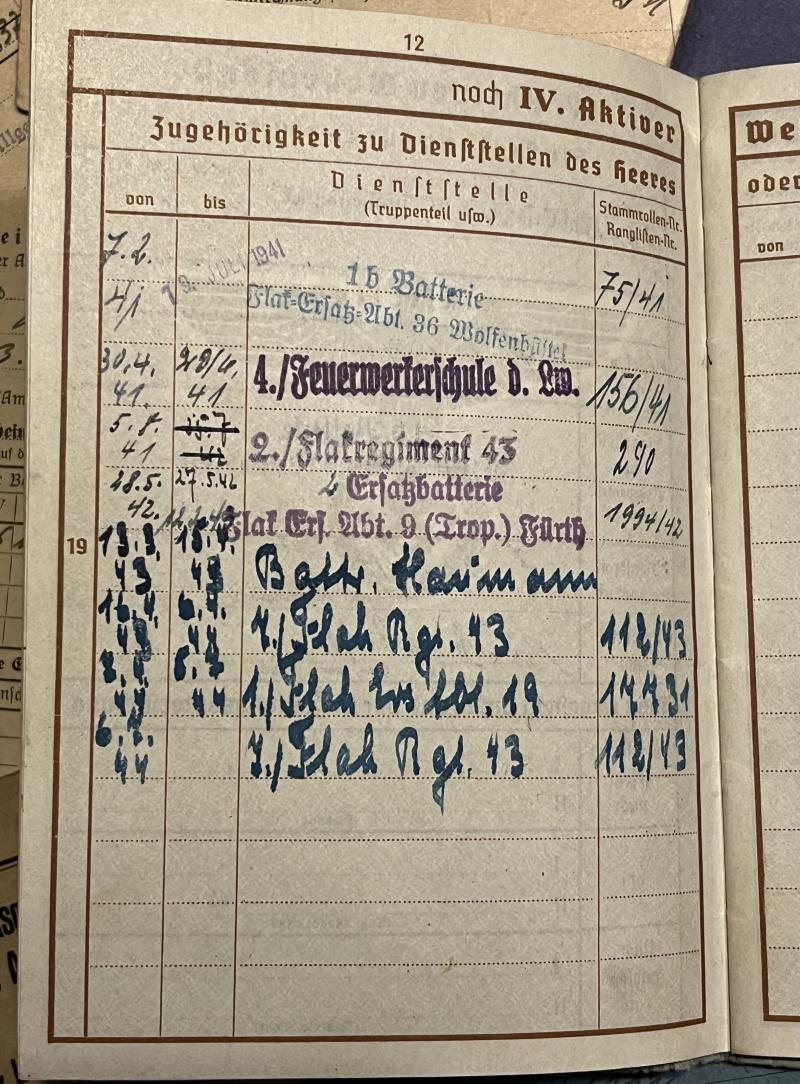 12
noch IV. Aktiver
Zugehörigkeit zu Dienststellen des Heeres
von
bis
Dienststelle
(Truppenteil usw.)
Stammrollen-Nr.
Ranglisten-Nr.
7.2.
41
JULI 1941
1b Batterie
Flak-Ersatz-Abt. 36 Wolfenbüttel
75/41
30.4.
41.
29/4.
41
4./Feuerwerkerschule d. Lw.
156/41
5.8.
41
2./Flakregiment 43
290
28.5.
42.
27.5.42
Ersatzbatterie
Flak Ers. Abt. 9 (Trop.) Fürth
1994/42
19
13.3.
43
15.4.
43
Battr. Haumann
16.4.
43
6.4.
44
7./Flak Rgt. 43
112/43
44
44
1./Flak Ers Abt. 19
44
7./Flak Rgt. 43
112/43
We
oder
von